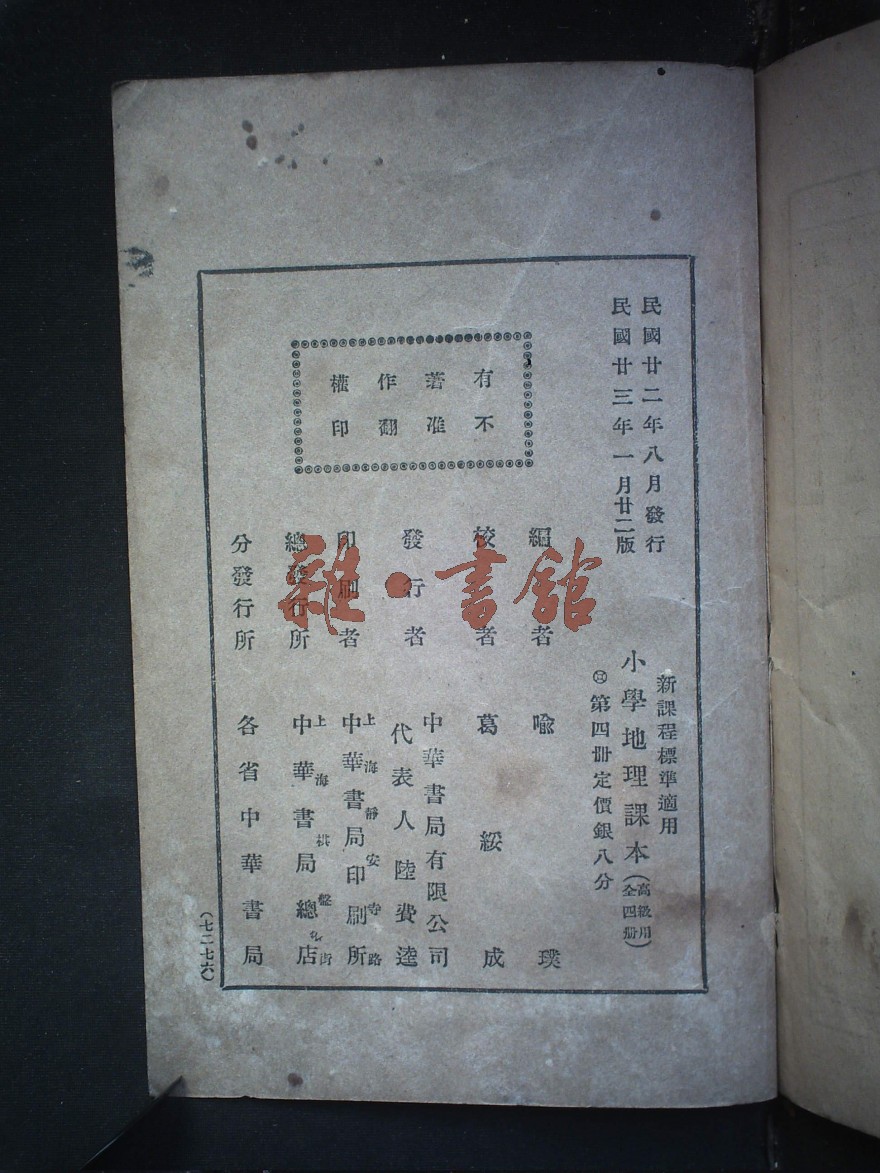 民國廿二年八月發行
民國廿三年一月廿二版
新課程標準適用
小學地理課本（高級用 全四冊）
第四冊定價銀八分
有著作權
不准翻印
編者 喩璞
校者 葛綏成
發行者 中華書局有限公司
代表人陸費逵
印刷者 上海靜安寺路
中華書局印刷所
總發行所 上海棋盤街
中華書局總店
分發行所 各省中華書局
（七二七六）
雜·書館